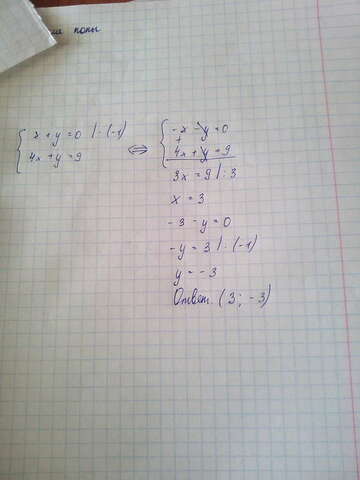 попы
x + y = 0 | · (-1)
4x + y = 9
⇔
-x - y = 0
+
4x + y = 9
3x = 9 | : 3
x = 3
-3 - y = 0
-y = 3 | · (-1)
y = -3
Ответ. (3; -3)